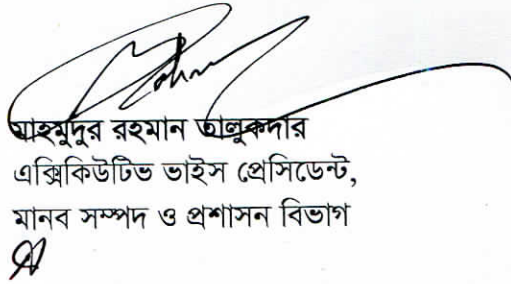 মাহমুদুর রহমান তালুকদার
এক্সিকিউটিভ ভাইস প্রেসিডেন্ট,
মানব সম্পদ ও প্রশাসন বিভাগ